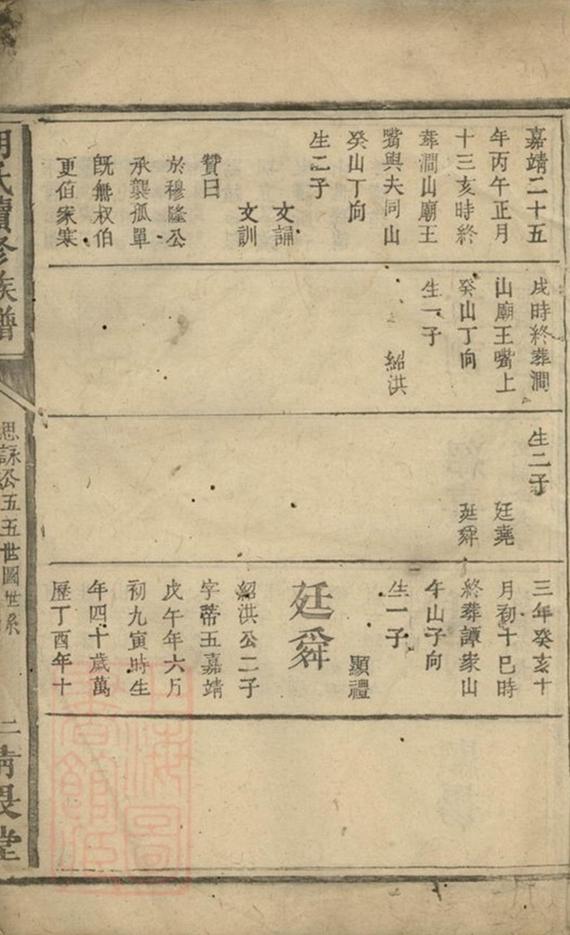 嘉靖二十五
年丙午正月
十三亥時終
葬澗山廟王
嘴與夫同山
癸山丁向
生二子
文誦
文訓
贊曰
於穆隆公
承襲孤單
既無叔伯
更伯家寒
戌時終葬澗
山廟王嘴上
癸山丁向
生一子
紹洪
生二子
廷堯
廷舜
三年癸亥十
月初十巳時
終葬譚家山
午山子向
生一子
顯禮
廷舜
紹洪公二子
字帝五嘉靖
戊午年六月
初九寅時生
年四十歲萬
歷丁酉年十
胡氏續修族譜
思詠公五五世圖世系
二